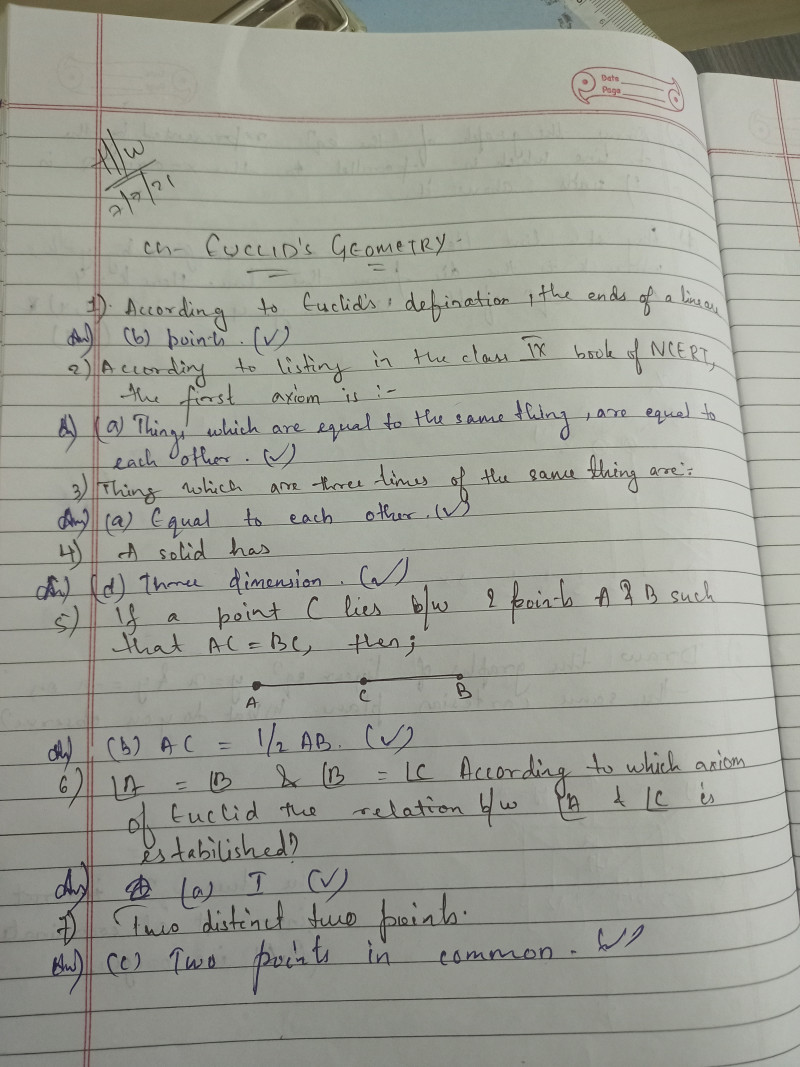 Date
Page
H/W
7/7/21
Ch- EUCLID'S GEOMETRY.
1) According to Euclid's, defination, the ends of a line are
Ans) (b) points. (✓)
2) According to listing in the class IX book of NCERT,
the first axiom is :-
A) (a) Things which are equal to the same thing, are equal to
each other. (✓)
3) Thing which are three times of the same thing are:-
Ans) (a) Equal to each other. (✓)
4) A solid has
Ans) (d) three dimension. (✓)
5) If a point C lies b/w 2 points A & B such
that AC = BC, then;
A C B
Ans) (b) AC = 1/2 AB. (✓)
6) ∠A = ∠B & ∠B = ∠C According to which axiom
of Euclid the relation b/w ∠A & ∠C is
estabilished?
Ans) (a) I (✓)
7) Two distinct two points.
Ans) (c) Two points in common. (✓)